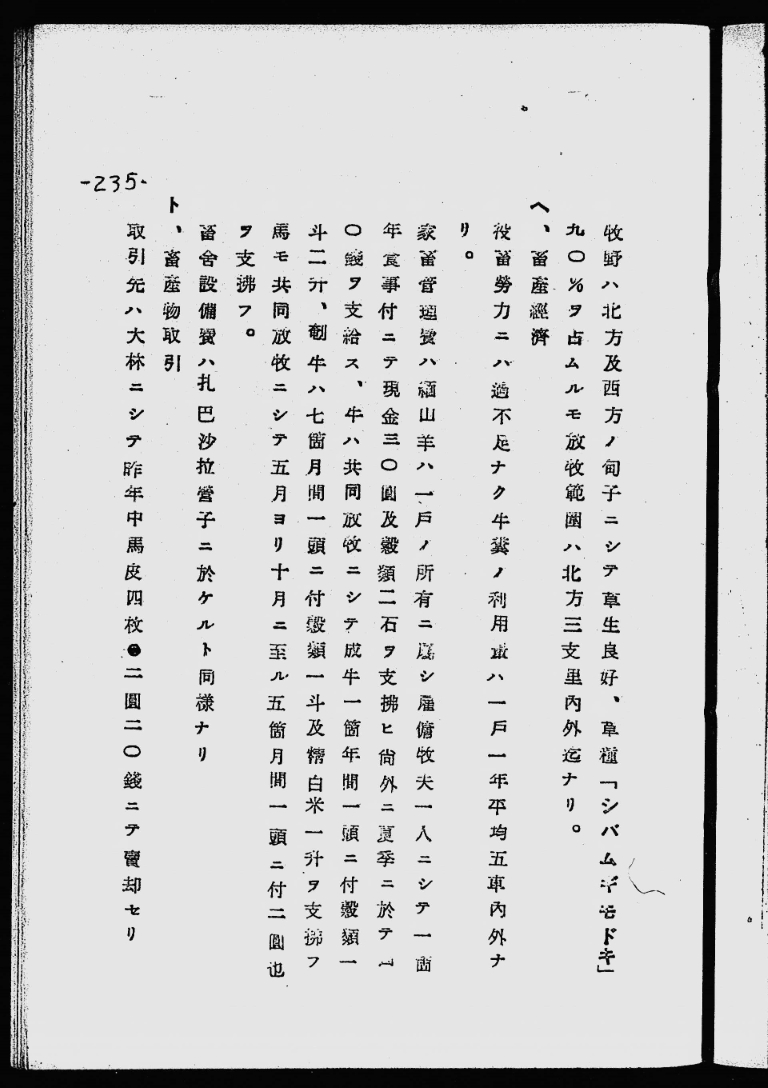 牧野ハ北方及西方ノ甸子ニシテ草生良好、草種「シバムギモドキ」
九〇％ヲ占ムルモ放牧範圍ハ北方三支里內外迄ナリ。
ヘ、畜產經濟
役畜勞力ニハ過不足ナク牛糞ノ利用量ハ一戶一年平均五車內外ナ
リ。
家畜管理費ハ緬山羊ハ一戶ノ所有ニ屬シ雇傭牧夫一人ニシテ一箇
年食事付ニテ現金三〇圓及穀類二石ヲ支拂ヒ尙外ニ夏季ニ於テ一
〇錢ヲ支給ス、牛ハ共同放牧ニシテ成牛一箇年間一頭ニ付穀類一
斗二升、犢牛ハ七箇月間一頭ニ付穀類一斗及精白米一升ヲ支拂フ
馬モ共同放牧ニシテ五月ヨリ十月ニ至ル五箇月間一頭ニ付二圓也
ヲ支拂フ。
畜舍設備費ハ扎巴沙拉營子ニ於ケルト同樣ナリ
ト、畜產物取引
取引先ハ大林ニシテ昨年中馬皮四枚●二圓二〇錢ニテ賣却セリ
-235-